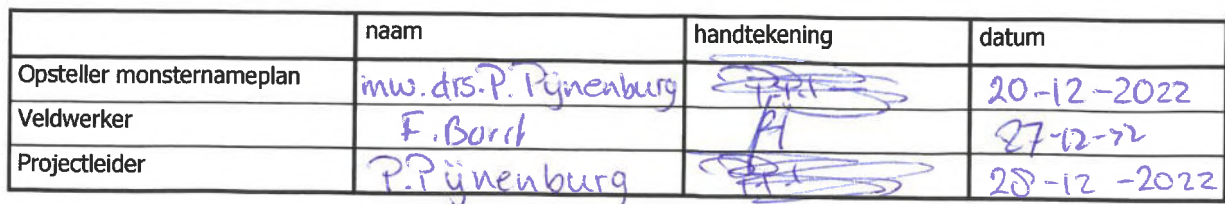 naam handtekening datum
Opsteller monsternameplan mw. drs. P. Pijnenburg 20-12-2022
Veldwerker F. 27-12-22
Projectleider P. Pijnenburg 28-12-2022